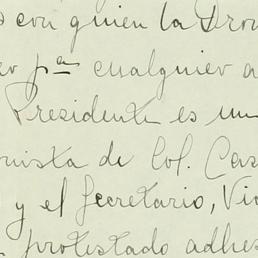 con quien la
pª cualquier a
Presidente es un
nista de Col. Cas
y el Secretario, Vi
protestado adhes